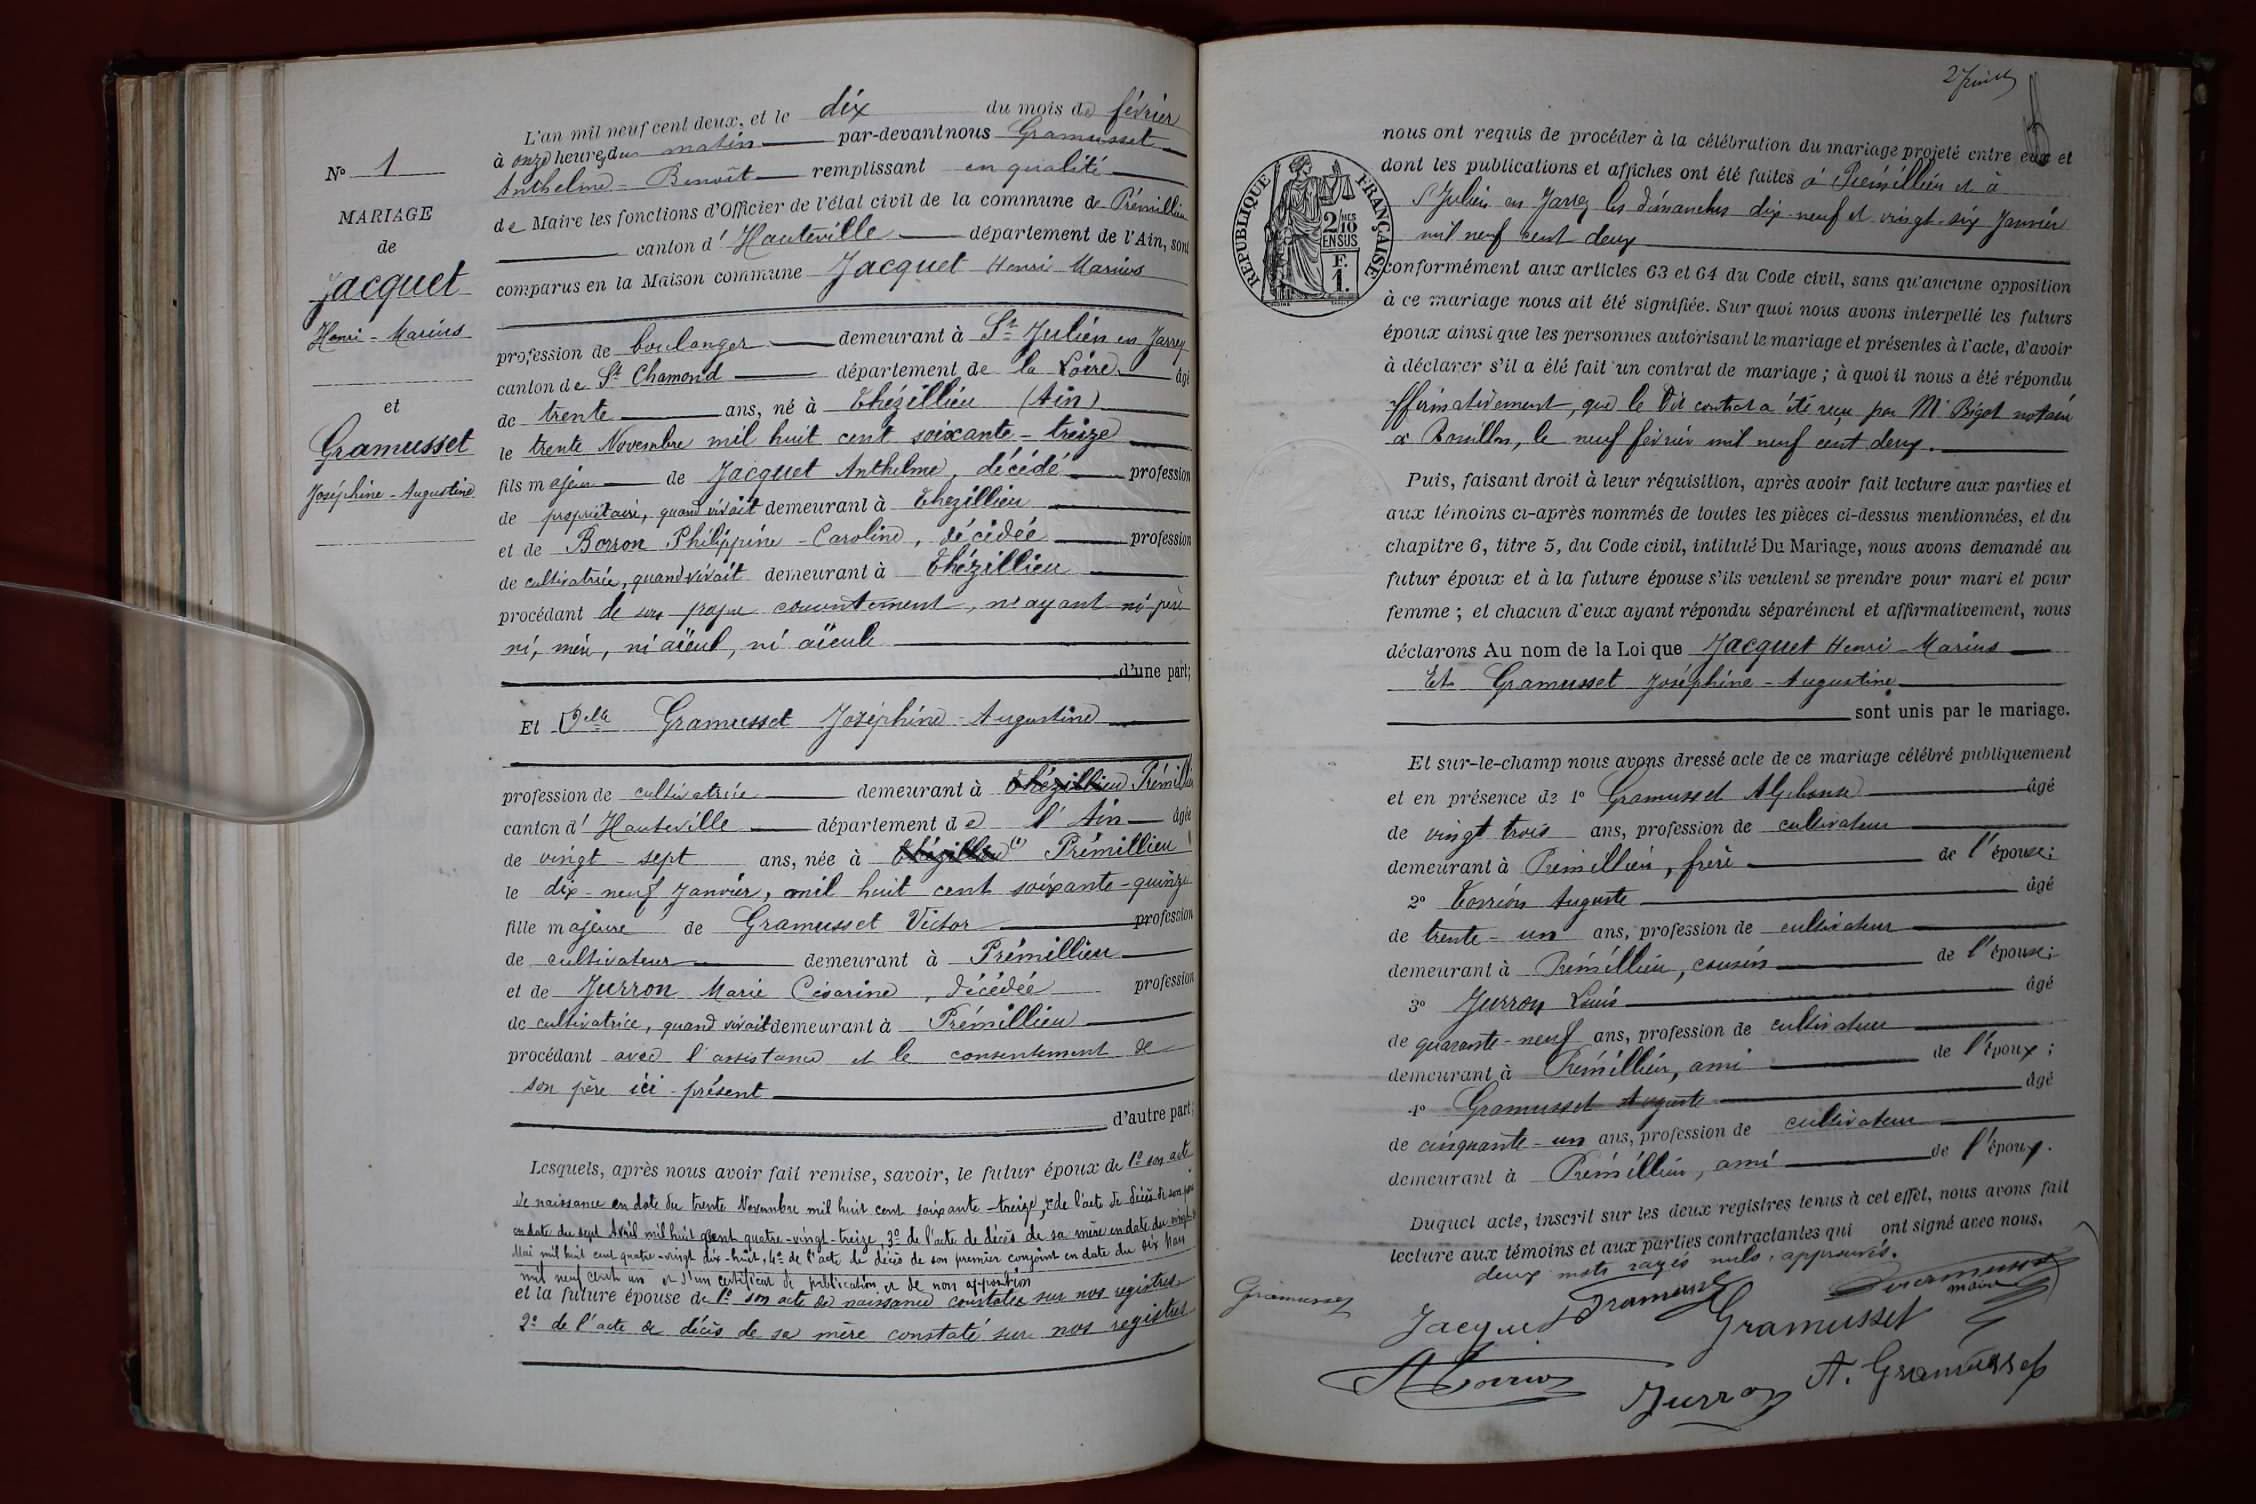 L'an mil neuf cent deux, et le dix du mois de février
à onze heures du matin par-devant nous Gramusset
Anthelme-Benoît remplissant en qualité
de Maire les fonctions d'Officier de l'état civil de la commune de Prémillieu
canton d'Hauteville département de l'Ain, sont
comparus en la Maison commune Jacquet Henri Marius
profession de boulanger demeurant à St Julien en Jarrez
canton de St Chamond département de la Loire âgé
de trente ans, né à Thézillieu (Ain)
le trente Novembre mil huit cent soixante-treize
fils majeur de Jacquet Anthelme, décédé profession
de propriétaire, quand vivait demeurant à Thezillieu
et de Borron Philippine-Caroline, décédée profession
de cultivatrice, quand vivait demeurant à Thézillieu
procédant de son propre consentement, n'ayant ni père
ni, mère, ni aïeul, ni aïeule
d'une part;
Et Delle Gramusset Joséphine-Augustine
profession de cultivatrice demeurant à Thézillieu Prémillieu
canton d'Hauteville département de l'Ain âgée
de vingt-sept ans, née à Thézillieu (1) Prémillieu
le dix-neuf Janvier, mil huit cent soixante-quinze
fille majeure de Gramusset Victor profession
de cultivateur demeurant à Prémillieu
et de Jurron Marie Césarine, décédée profession
de cultivatrice, quand vivait demeurant à Prémillieu
procédant avec l'assistance et le consentement de
son père ici-présent
d'autre part;
Lesquels, après nous avoir fait remise, savoir, le futur époux de 1º son acte
de naissance en date du trente Novembre mil huit cent soixante-treize, 2º de l'acte de décès de son père
en date du sept Avril mil huit cent quatre-vingt-treize, 3º de l'acte de décès de sa mère en date du
Mai mil huit cent quatre-vingt dix-huit, 4º de l'acte de décès de son premier conjoint en date du dix Mars
mil neuf cent un et d'un certificat de publication et de non opposition
et la future épouse de 1º son acte de naissance constatée sur nos registres
2º de l'acte de décès de sa mère constaté sur nos registres
Nº 1
MARIAGE
de
Jacquet
Henri-Marius
et
Gramusset
Joséphine-Augustine
nous ont requis de procéder à la célébration du mariage projeté entre eux et
dont les publications et affiches ont été faites à Prémillieu et à
St Julien en Jarrez les dimanches dix-neuf et vingt-six Janvier
mil neuf cent deux
conformément aux articles 63 et 64 du Code civil, sans qu'aucune opposition
à ce mariage nous ait été signifiée. Sur quoi nous avons interpellé les futurs
époux ainsi que les personnes autorisant le mariage et présentes à l'acte, d'avoir
à déclarer s'il a été fait un contrat de mariage; à quoi il nous a été répondu
affirmativement, que le dit contrat a été reçu par Me Bigot notaire
à Rossillon, le neuf février mil neuf cent deux.
Puis, faisant droit à leur réquisition, après avoir fait lecture aux parties et
aux témoins ci-après nommés de toutes les pièces ci-dessus mentionnées, et du
chapitre 6, titre 5, du Code civil, intitulé Du Mariage, nous avons demandé au
futur époux et à la future épouse s'ils veulent se prendre pour mari et pour
femme; et chacun d'eux ayant répondu séparément et affirmativement, nous
déclarons Au nom de la Loi que Jacquet Henri-Marius
Et Gramusset Joséphine-Augustine
sont unis par le mariage.
Et sur-le-champ nous avons dressé acte de ce mariage célébré publiquement
et en présence de 1º Gramusset Alphonse âgé
de vingt trois ans, profession de cultivateur
demeurant à Prémillieu, frère de l'épouse;
2º Torrion Auguste âgé
de trente-un ans, profession de cultivateur
demeurant à Prémillieu, cousin de l'épouse;
3º Jurron Louis âgé
de quarante-neuf ans, profession de cultivateur
demeurant à Prémillieu, ami de l'époux;
4º Gramusset Auguste âgé
de cinquante-un ans, profession de cultivateur
demeurant à Prémillieu, ami de l'époux.
Duquel acte, inscrit sur les deux registres tenus à cet effet, nous avons fait
lecture aux témoins et aux parties contractantes qui ont signé avec nous.
deux mots rayés nuls, approuvés.
Gramusset
Jacquet Gramusset Gramusset maire
Gramusset
A Torrion Jurron A. Gramusset
RÉPUBLIQUE FRANÇAISE
2/10
EN SUS
F.
1.